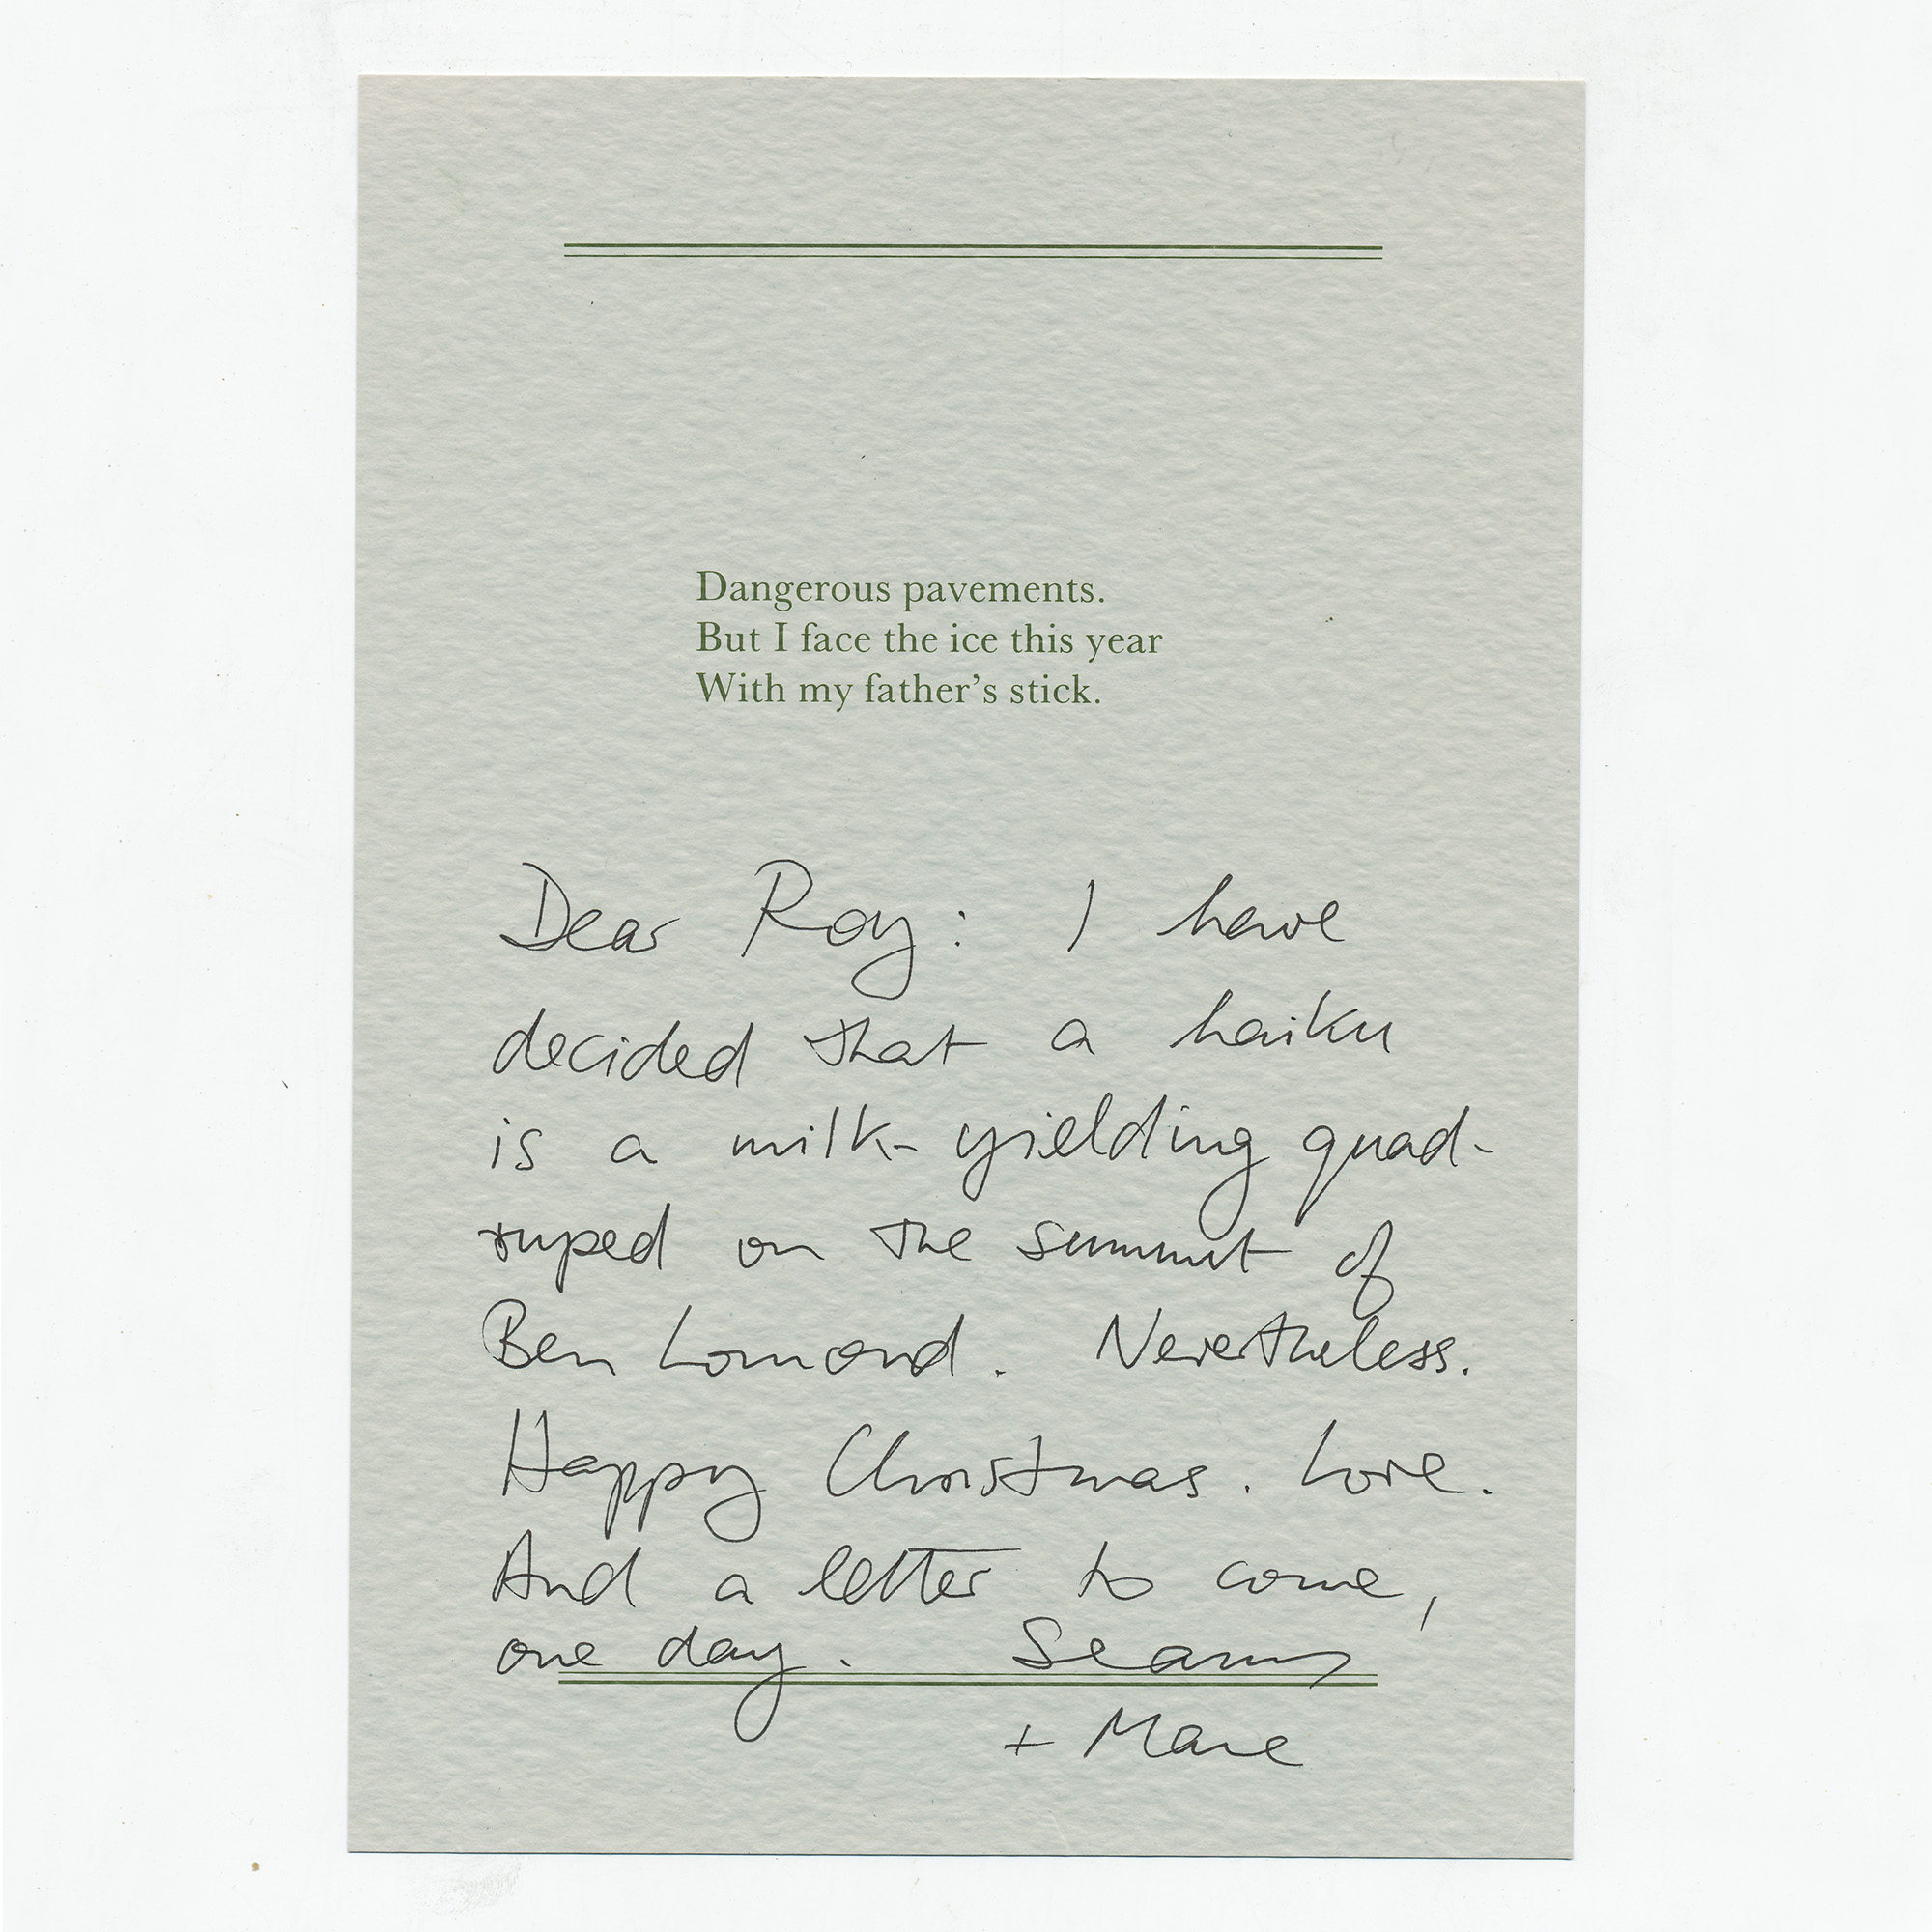 Dangerous pavements.
But I face the ice this year
With my father’s stick.
Dear Roy: I have
decided that a haiku
is a milk-yielding quad-
ruped on the summit of
Ben Lomond. Nevertheless.
Happy Christmas. Love.
And a letter to come,
one day. Seamus
+ Marie